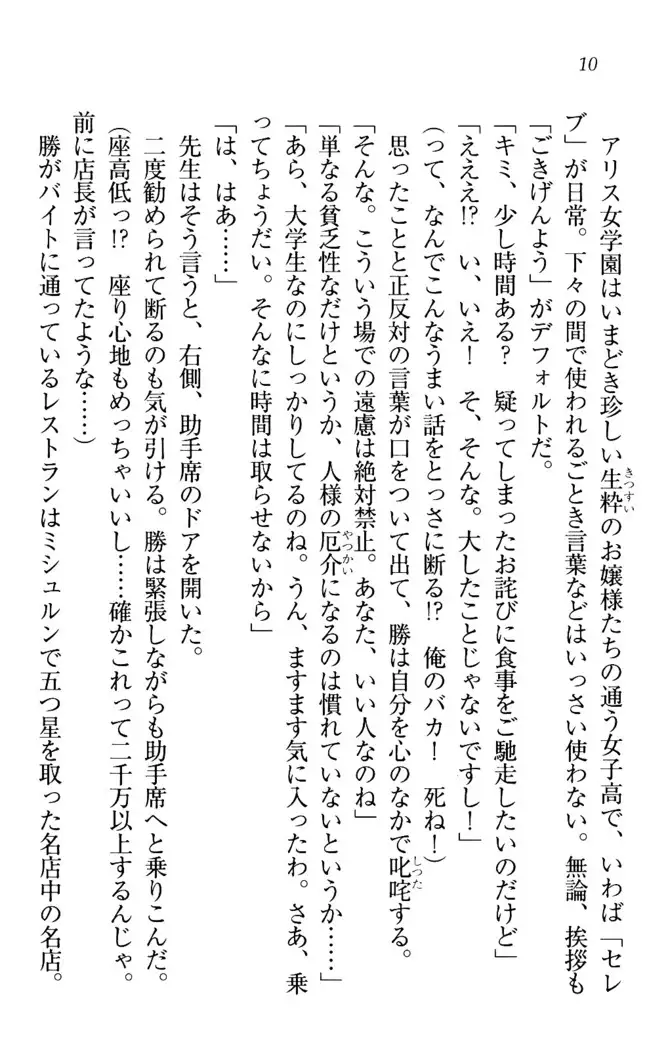 10
アリス女学園はいまどき珍しい生粋のお嬢様たちの通う女子高で、いわば「セレ
ブ」が日常。下々の間で使われるごとき言葉などはいっさい使わない。無論、挨拶も
「ごきげんよう」がデフォルトだ。
「キミ、少し時間ある？　疑ってしまったお詫びに食事をご馳走したいのだけど」
「えええ!?　い、いえ！　そ、そんな。大したことじゃないですし！」
（って、なんでこんなうまい話をとっさに断る!?　俺のバカ！　死ね！）
思ったことと正反対の言葉が口をついて出て、勝は自分を心のなかで叱咤する。
「そんな。こういう場での遠慮は絶対禁止。あなた、いい人なのね」
「単なる貧乏性なだけというか、人様の厄介になるのは慣れていないというか……」
「あら、大学生なのにしっかりしてるのね。うん、ますます気に入ったわ。さあ、乗
ってちょうだい。そんなに時間は取らせないから」
「は、はあ……」
先生はそう言うと、右側、助手席のドアを開いた。
二度勧められて断るのも気が引ける。勝は緊張しながらも助手席へと乗りこんだ。
（座高低っ!?　座り心地もめっちゃいいし……確かこれって二千万以上するんじゃ。
前に店長が言ってたような……）
勝がバイトに通っているレストランはミシュルンで五つ星を取った名店中の名店。
きつすい
しつた
やつかい